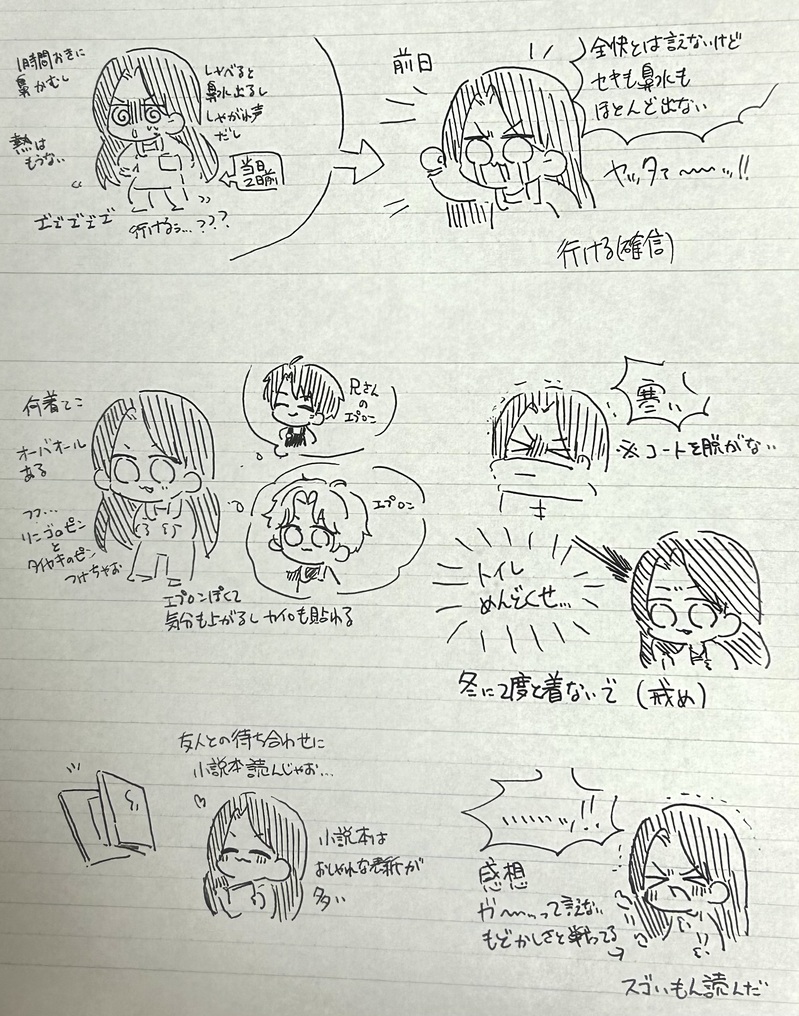 1時間おきに
鼻かむし
熱は
もうない
しゃべると
鼻水出るし
しゃがれ声
だし
当日
2日前
行けるぅ…???
前日
全快とは言えないけど
セキも鼻水も
ほとんど出ない
ヤッタァ〜〜ッ!!
行ける(確信)
何着てこ
オーバオール
ある
フフ…
リンゴのピン
と
タイヤキのピン
つけちゃお
兄さん
の
エプロン
エプロン
エプロンぽくて
気分も上がるしカイロも貼れる
寒い
※コートを脱がない
トイレ
めんどくせ…
冬に2度と着ないで(戒め)
友人との待ち合わせに
小説本読んじゃお…
小説本は
おしゃれな表紙が
多い
………!!
感想
ガ〜〜って言えない
もどかしさと戦ってる
スゴいもん読んだ